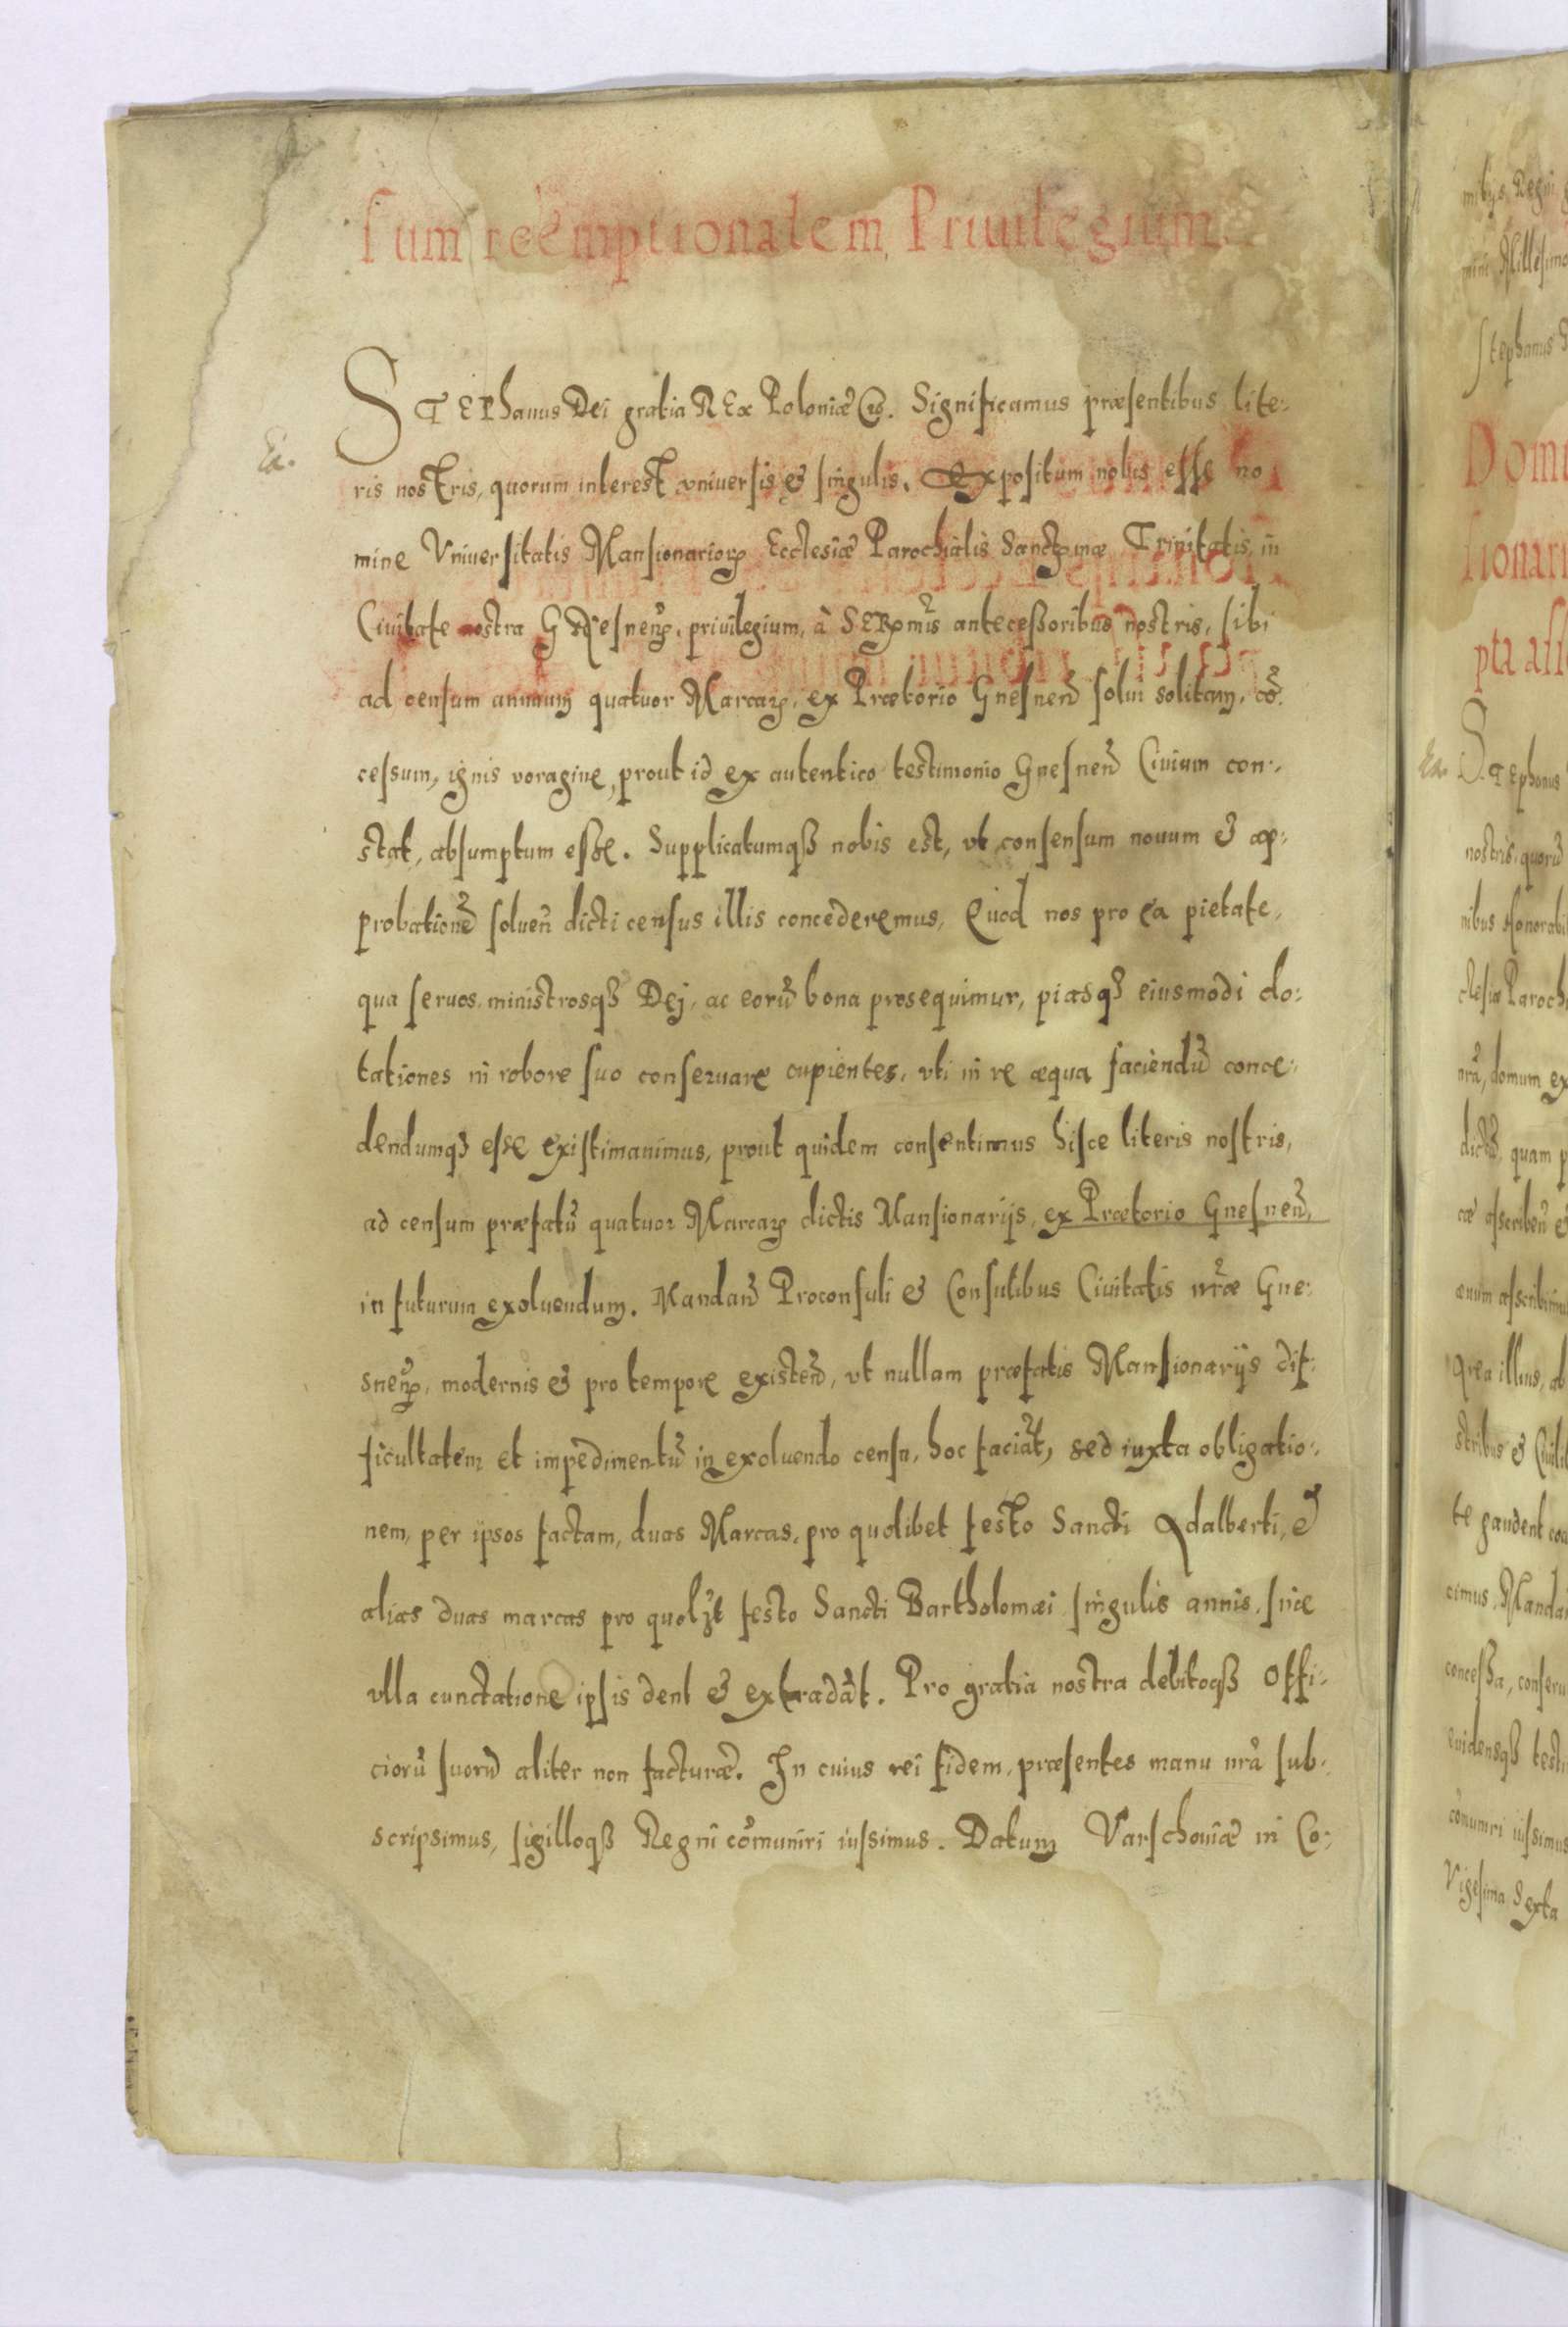 sum reemptionalem Priuilegium.
STEPhanus Dei gratia REx Poloniæ &c. Significamus præsentibus lite-
Ea.
ris nostris, quorum interest vniuersis & singulis. Expositum nobis esse no
mine Vniuersitatis Mansionarioꝝ Ecclesiæ Parochialis Sanctꝫmæ Trinitatis, in
Ciuitate nostra GNesneñ, priuilegium, à SERꝫmis antecessoribus nostris, sibi
ad censum annuum quatuor Marcaꝝ, ex Prætorio Gnesneñ solui solitum, cõ-
cessum, ignis voragine, prout id ex autentico testimonio Gnesneñ Ciuium con-
stat, absumptum esse. Supplicatumqꝫ nobis est, vt consensum nouum & ap-
probationẽ soluen̄ dicti census illis concederemus, Quod nos pro ea pietate,
qua seruos ministrosqꝫ Dej, ac eorũ bona prosequimur, piasqꝫ eiusmodi do-
tationes in robore suo conseruare cupientes, vti in re æqua faciendũ conce-
dendumqꝫ esse existimauimus, prout quidem consentimus hisce literis nostris,
ad censum præfatũ quatuor Marcaꝝ dictis Mansionarijs, ex Prætorio Gnesneñ,
in futurum exoluendum. Mandañ Proconsuli & Consulibus Ciuitatis nr̃æ Gne-
sneñ, modernis & pro tempore existeñ, vt nullam præfatis Mansionarijs dif-
ficultatem et impedimentũ in exoluendo censu, hoc faciãt, sed iuxta obligatio-
nem, per ipsos factam, duas Marcas, pro quolibet festo Sancti Adalberti, &
alias duas marcas pro quolꝫt festo Sancti Bartholomæi singulis annis, sine
vlla cunctatione ipsis dent & extradãt. Pro gratia nostra debitoqꝫ Offi-
ciorũ suorũ aliter non facturæ. In cuius rei fidem, præsentes manu nrã sub-
scripsimus, sigilloqꝫ Regni cõmuniri iussimus. Datum Varschouiæ in Co-
mitijs Regni
mini Millesimo
Stephanus
Ea. STephanus
nostris, quorũ
nrã, domum ex
dictũ, quam
stribus &
te gaudent
cimus, Manda
concessa, conseru
euidensqꝫ testi
cõmuniri iussimus
Vigesima Sexta